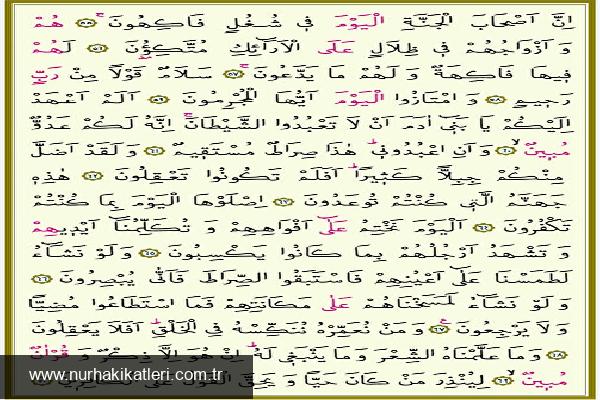 اِنَّ اَصْحَابَ الْجَنَّةِ الْيَوْمَ ف۪ي شُغُلٍ فَاكِهُونَۚ ﴿٥٥﴾ هُمْ
وَ اَزْوَاجُهُمْ ف۪ي ظِلَالٍ عَلَى الْاَرَٓائِكِ مُتَّكِؤُ۫نَ ﴿٥٦﴾ لَهُمْ
ف۪يهَا فَاكِهَةٌ وَ لَهُمْ مَا يَدَّعُونَۚ ﴿٥٧﴾ سَلَامٌ قَوْلًا مِنْ رَبٍّ
رَح۪يمٍ ﴿٥٨﴾ وَ امْتَازُوا الْيَوْمَ اَيُّهَا الْمُجْرِمُونَ ﴿٥٩﴾ اَلَمْ اَعْهَدْ
اِلَيْكُمْ يَا بَن۪ٓي اٰدَمَ اَنْ لَا تَعْبُدُوا الشَّيْطَانَۚ اِنَّهُ لَكُمْ عَدُوٌّ
مُب۪ينٌۙ ﴿٦٠﴾ وَ اَنِ اعْبُدُون۪يۜ هٰذَا صِرَاطٌ مُسْتَق۪يمٌ ﴿٦١﴾ وَ لَقَدْ اَضَلَّ
مِنْكُمْ جِبِلًّا كَث۪يرًاۜ اَفَلَمْ تَكُونُوا تَعْقِلُونَ ﴿٦٢﴾ هٰذِه۪
جَهَنَّمُ الَّت۪ي كُنْتُمْ تُوعَدُونَ ﴿٦٣﴾ اِصْلَوْهَا الْيَوْمَ بِمَا كُنْتُمْ
تَكْفُرُونَ ﴿٦٤﴾ اَلْيَوْمَ نَخْتِمُ عَلٰٓى اَفْوَاهِهِمْ وَ تُكَلِّمُنَٓا اَيْد۪يهِمْ
وَ تَشْهَدُ اَرْجُلُهُمْ بِمَا كَانُوا يَكْسِبُونَ ﴿٦٥﴾ وَ لَوْ نَشَٓاءُ
لَطَمَسْنَا عَلٰٓى اَعْيُنِهِمْ فَاسْتَبَقُوا الصِّرَاطَ فَاَنّٰى يُبْصِرُونَ ﴿٦٦﴾
وَ لَوْ نَشَٓاءُ لَمَسَخْنَاهُمْ عَلٰى مَكَانَتِهِمْ فَمَا اسْتَطَاعُوا مُضِيًّا
وَ لَا يَرْجِعُونَ ﴿٦٧﴾ وَ مَنْ نُعَمِّرْهُ نُنَكِّسْهُ فِي الْخَلْقِۜ اَفَلَا يَعْقِلُونَ
﴿٦٨﴾ وَ مَا عَلَّمْنَاهُ الشِّعْرَ وَ مَا يَنْبَغ۪ي لَهُۜ اِنْ هُوَ اِلَّا ذِكْرٌ وَ قُرْاٰنٌ
مُب۪ينٌۙ ﴿٦٩﴾ لِيُنْذِرَ مَنْ كَانَ حَيًّا وَ يَحِقَّ الْقَوْلُ عَلَى الْكَافِر۪ينَ
www.nurhakikatleri.com.tr